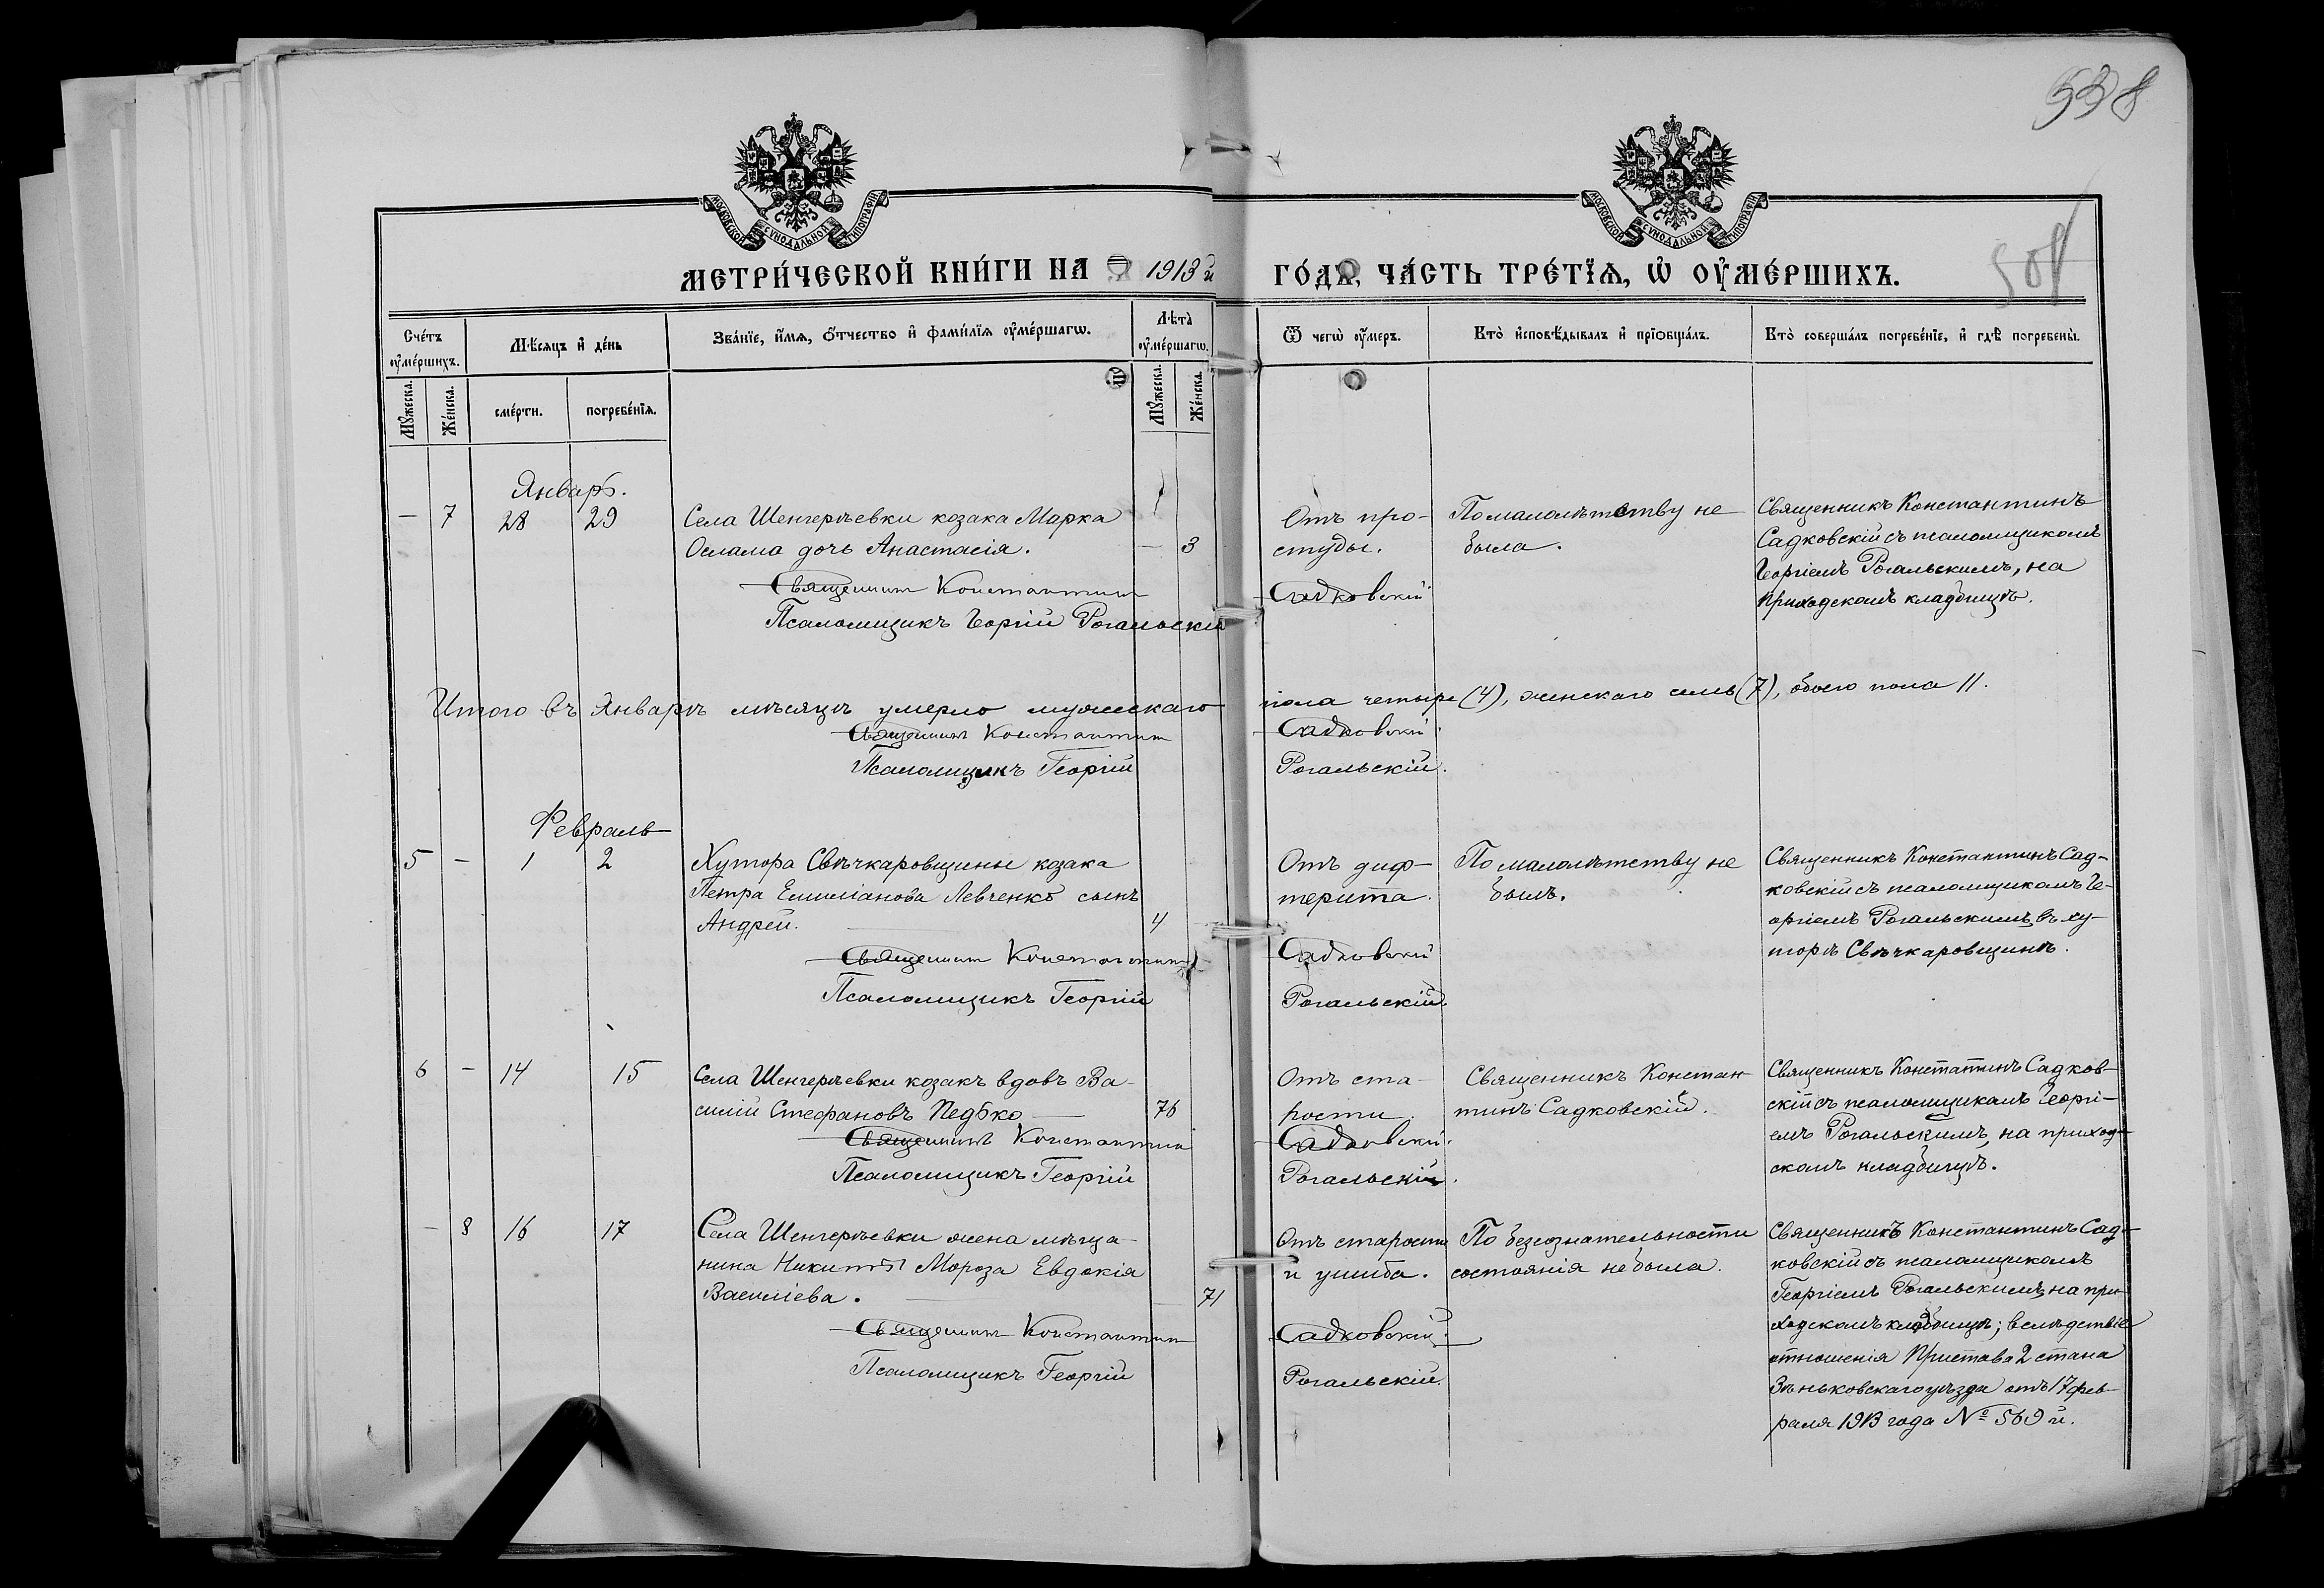 538
508
МОСКОВСКОЙ СѴНОДАЛЬНОЙ ТИПОГРАФІИ
МОСКОВСКОЙ СѴНОДАЛЬНОЙ ТИПОГРАФІИ
МЕТРИ́ЧЕСКОЙ КНИ́ГИ НА 1913 й ГО́ДЪ, ЧА́СТЬ ТРЕ́ТЇѦ, Ѡ҆ ОУ҆МЕ́РШИХЪ.
Сче́тъ оу҆ме́ршихъ.
Мѣ́сѧцъ и҆ де́нь
Зва́нїе, и҆́мѧ, о҆́тчество и҆ фами́лїѧ оу҆ме́ршагѡ.
Лѣ́та оу҆ме́ршагѡ.
Ѿ чегѡ̀ оу҆́меръ.
Кто̀ и҆сповѣ́дывалъ и҆ прїѡбща́лъ.
Кто̀ соверша́лъ погребе́нїе, и҆ гдѣ̀ погребены̀.
Мꙋ́жеска.
Же́нска.
сме́рти.
погребе́нїѧ.
Мꙋ́жеска.
Же́нска.
Январь.
— 7 28 29
Села Шенгерѣевки козака Марка
Ослама дочь Анастасія. — 3
Священникъ Константинъ
Псаломщикъ Георгій Рогальскій
Отъ про-
студы.
Садковскій
По малолѣтству не
была.
Священникъ Константинъ
Садковскій съ псаломщикомъ
Георгіемъ Рогальскимъ, на
приходскомъ кладбищѣ.
Итого въ Январѣ мѣсяцѣ умерло мужескаго пола четыре (4), женскаго семь (7), обоего пола 11.
Священникъ Константинъ Садковскій.
Псаломщикъ Георгій Рогальскій.
Февраль
5 — 1 2
Хутора Свѣчкаровщины козака
Петра Емиліанова Левченко сынъ
Андрей. 4
Священникъ Константинъ
Псаломщикъ Георгій
Отъ диф-
терита.
Садковскій
Рогальскій.
По малолѣтству не
былъ.
Священникъ Константинъ Сад-
ковскій съ псаломщикомъ Ге-
оргіемъ Рогальскимъ, въ ху-
торѣ Свѣчкаровщинѣ.
6 — 14 15
Села Шенгерѣевки козакъ вдовъ Ва-
силій Стефановъ Педько 76
Священникъ Константинъ
Псаломщикъ Георгій
Отъ ста-
рости.
Садковскій.
Рогальскій.
Священникъ Констан-
тинъ Садковскій.
Священникъ Константинъ Садков-
скій съ псаломщикомъ Георгі-
емъ Рогальскимъ, на приход-
скомъ кладбищѣ.
— 8 16 17
Села Шенгерѣевки жена мѣща-
нина Никиты Мороза Евдокія
Василіева. — 71
Священникъ Константинъ
Псаломщикъ Георгій
Отъ старости
и ушиба.
Садковскій.
Рогальскій.
По безсознательности
состоянія не была.
Священникъ Константинъ Сад-
ковскій съ псаломщикомъ
Георгіемъ Рогальскимъ, на при-
ходскомъ кладбищѣ; вслѣдствіе
отношенія Пристава 2 стана
Зѣньковскаго уѣзда отъ 17 фев-
раля 1913 года № 569 й.